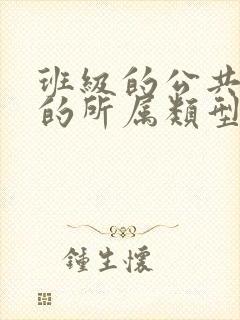 班級的公共
的所属類型
鍾生懷